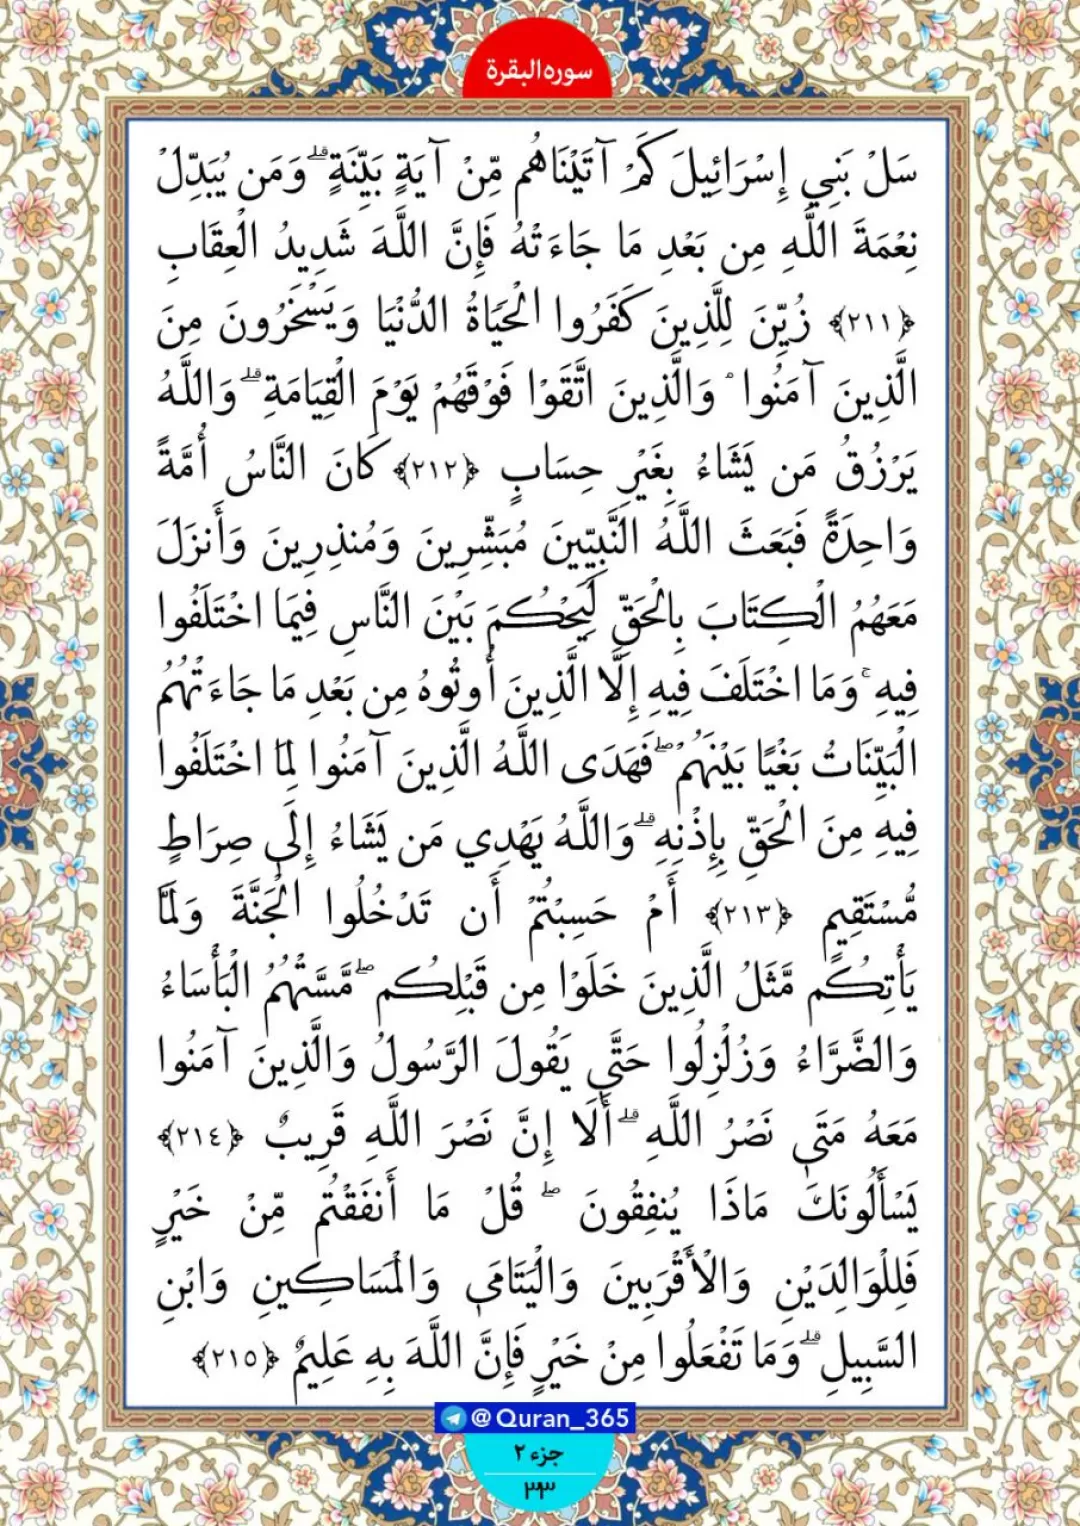 سوره البقرة
سَلْ بَنِي إِسْرَائِيلَ كَمْ آتَيْنَاهُم مِّنْ آيَةٍ بَيِّنَةٍ ۗ وَمَن يُبَدِّلْ
نِعْمَةَ اللَّهِ مِن بَعْدِ مَا جَاءَتْهُ فَإِنَّ اللَّهَ شَدِيدُ الْعِقَابِ
﴿٢١١﴾ زُيِّنَ لِلَّذِينَ كَفَرُوا الْحَيَاةُ الدُّنْيَا وَيَسْخَرُونَ مِنَ
الَّذِينَ آمَنُوا ۘ وَالَّذِينَ اتَّقَوْا فَوْقَهُمْ يَوْمَ الْقِيَامَةِ ۗ وَاللَّهُ
يَرْزُقُ مَن يَشَاءُ بِغَيْرِ حِسَابٍ ﴿٢١٢﴾ كَانَ النَّاسُ أُمَّةً
وَاحِدَةً فَبَعَثَ اللَّهُ النَّبِيِّينَ مُبَشِّرِينَ وَمُنذِرِينَ وَأَنزَلَ
مَعَهُمُ الْكِتَابَ بِالْحَقِّ لِيَحْكُمَ بَيْنَ النَّاسِ فِيمَا اخْتَلَفُوا
فِيهِ ۚ وَمَا اخْتَلَفَ فِيهِ إِلَّا الَّذِينَ أُوتُوهُ مِن بَعْدِ مَا جَاءَتْهُمُ
الْبَيِّنَاتُ بَغْيًا بَيْنَهُمْ ۖ فَهَدَى اللَّهُ الَّذِينَ آمَنُوا لِمَا اخْتَلَفُوا
فِيهِ مِنَ الْحَقِّ بِإِذْنِهِ ۗ وَاللَّهُ يَهْدِي مَن يَشَاءُ إِلَىٰ صِرَاطٍ
مُّسْتَقِيمٍ ﴿٢١٣﴾ أَمْ حَسِبْتُمْ أَن تَدْخُلُوا الْجَنَّةَ وَلَمَّا
يَأْتِكُم مَّثَلُ الَّذِينَ خَلَوْا مِن قَبْلِكُم ۖ مَّسَّتْهُمُ الْبَأْسَاءُ
وَالضَّرَّاءُ وَزُلْزِلُوا حَتَّىٰ يَقُولَ الرَّسُولُ وَالَّذِينَ آمَنُوا
مَعَهُ مَتَىٰ نَصْرُ اللَّهِ ۗ أَلَا إِنَّ نَصْرَ اللَّهِ قَرِيبٌ ﴿٢١٤﴾
يَسْأَلُونَكَ مَاذَا يُنفِقُونَ ۖ قُلْ مَا أَنفَقْتُم مِّنْ خَيْرٍ
فَلِلْوَالِدَيْنِ وَالْأَقْرَبِينَ وَالْيَتَامَىٰ وَالْمَسَاكِينِ وَابْنِ
السَّبِيلِ ۗ وَمَا تَفْعَلُوا مِنْ خَيْرٍ فَإِنَّ اللَّهَ بِهِ عَلِيمٌ ﴿٢١٥﴾
@Quran_365
جزء ۲
۳۳